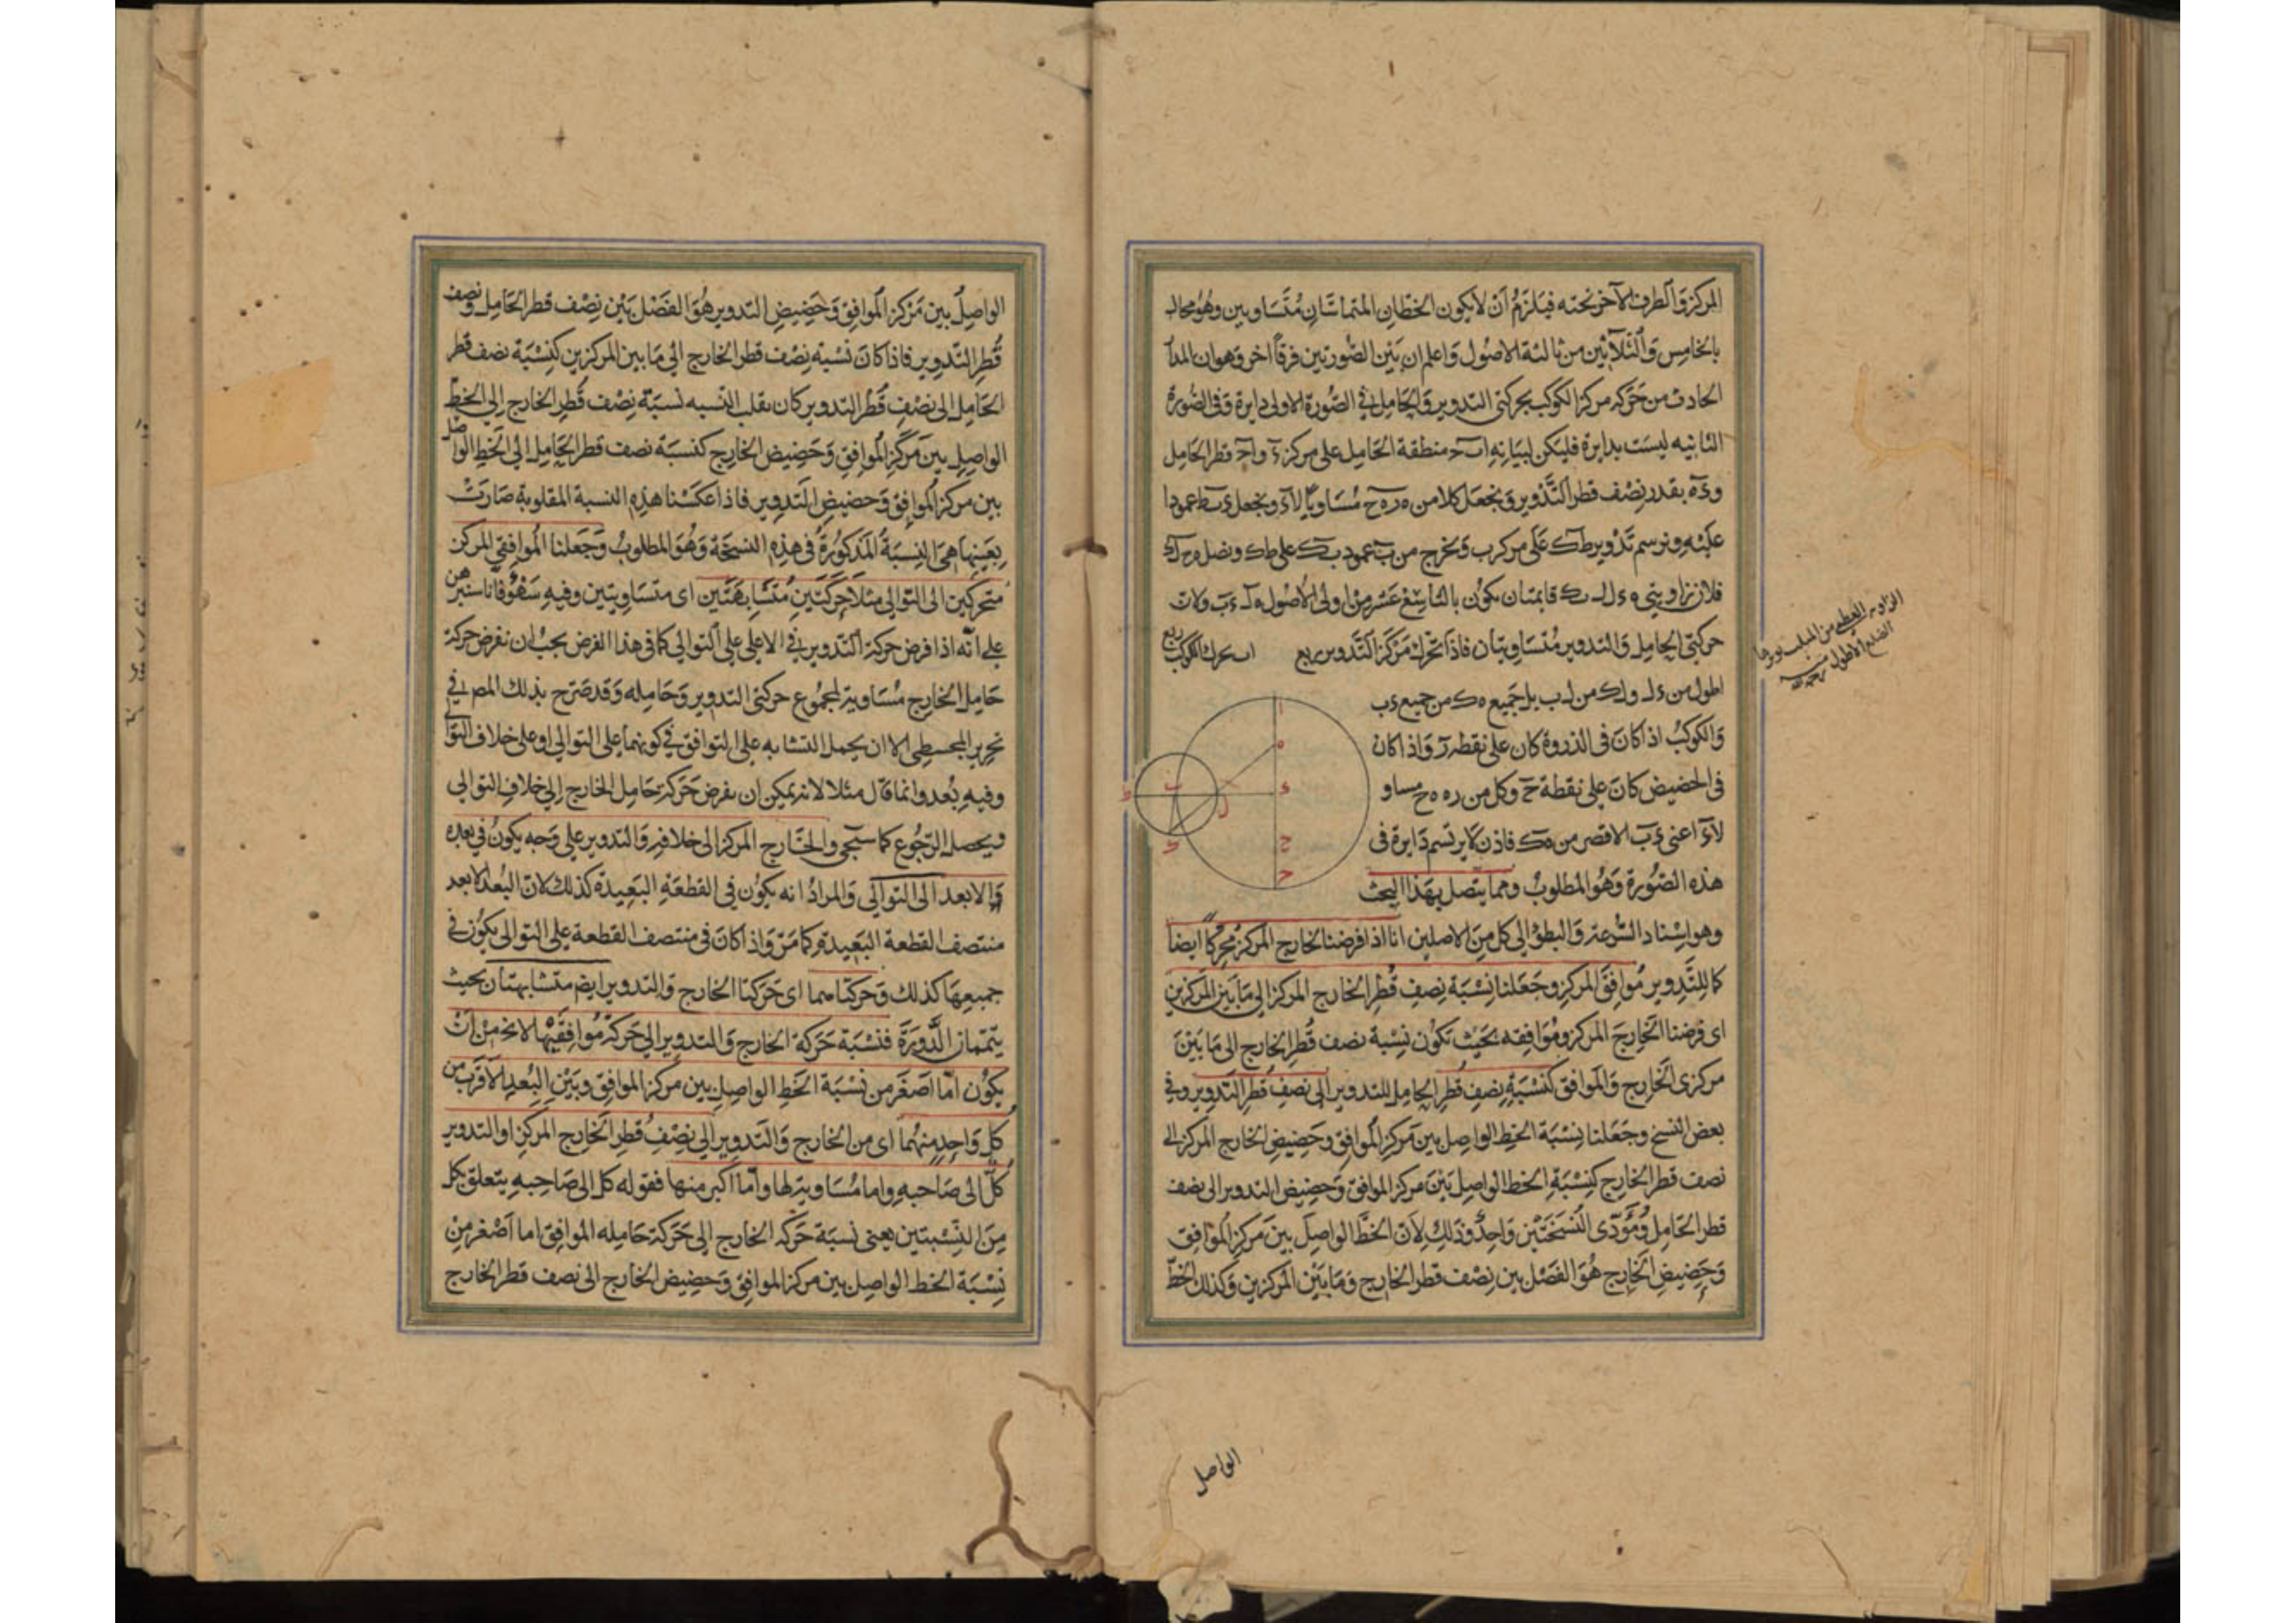 المركز والطرف الآخر تحته فيلزم ان لا يكون الخطان المتماسان متساويين وهو محال
بالخامس والثلاثين من ثالثة الاصول واعلم ان بين الصورتين فرقا اخر وهو ان المدار
الحادث من حركة مركز الكوكب بحركتى التدوير والحامل فى الصورة الاولى دايرة وفى الصورة
الثانيه ليست بدايرة فليكن لبيانه ا ب ح منطقة الحامل على مركز ء و ا ح قطر الحامل
و ء ه بقدر نصف قطر التدوير ونجعل كلا من ه ر ه ح مساويا لا ء ونجعل ء ب عمودا
عليه ونرسم تدوير ط ك على مركز ب ونخرج من ب عمود ب ك على ط ك ونصل ه ح ل ك
فلان زاويتى ه ء ل ب ك قايمتان يكون بالتاسع عشر من اولى الاصول ه ل ء ب ولان
حركتى الحامل والتدوير متساويتان فاذا تحرك مركز التدوير ربع ا ب تحرك الكوكب ربع
اطول من ء ل و ل ك من ل ب بل جميع ه ك من جميع ء ب
والكوكب اذ اكان فى الذروة كان على نقطة ر واذ اكان
فى الحضيض كان على نقطة ح وكل من ر ه ه ح مساو
لا ء اعنى ء ب الاقصر من ه ك فاذن لا يرتسم دايرة فى
هذه الصورة وهو المطلوب ومما يتصل بهذا البحث
وهو اسناد السرعة والبطؤ الى كل من الاصلين انا اذا فرضنا لخارج المركز محركا ايضا
كما للتدوير موافق المركز وجعلنا نسبة نصف قطر الخارج المركز الى ما بين المركزين
اى فرضنا الخارج المركز وموافقه بحيث تكون نسبة نصف قطر الخارج الى ما بين
مركزى الخارج والموافق كنسبة نصف قطر الحامل للتدوير الى نصف قطر التدوير وفى
بعض النسخ وجعلنا نسبة الخط الواصل بين مركز الموافق وحضيض الخارج المركز الى
نصف قطر الخارج كنسبة الخط الواصل بين مركز الموافق وحضيض التدوير الى نصف
قطر الحامل ومؤدى النسختين واحد وذلك لان الخط الواصل بين مركز الموافق
وحضيض الخارج هو الفضل بين نصف قطر الخارج وما بين المركزين وكذلك الخط
الزاويه العظمى من المثلث يوترها
الضلع الاطول
الواصل
الواصل بين مركز الموافق وحضيض التدوير هو الفضل بين نصف قطر الحامل ونصف
قطر التدوير فاذا كان نسبة نصف قطر الخارج الى ما بين المركزين كنسبة نصف قطر
الحامل الى نصف قطر التدوير كان بقلب النسبه نسبة نصف قطر الخارج الى الخط
الواصل بين مركز الموافق وحضيض الخارج كنسبة نصف قطر الحامل الى الخط الواصل
بين مركز الموافق وحضيض التدوير فاذا عكسنا هذه النسبة المقلوبة صارت
بعينها هى النسبة المذكورة فى هذه النسخة وهو المطلوب وجعلنا الموافقى المركز
متحركين الى التوالى مثلا حركتين متشابهتين اى متساويتين وفيه سهو فانا سنبرهن
على انه اذا فرض حركة التدوير فى الاعلى على التوالى كما فى هذا الفرض يجب ان نفرض حركة
حامل الخارج مساوية لمجموع حركتى التدوير وحامله وقد صرح بذلك المص فى
تحرير المجسطى الا ان يحمل التشابه على التوافق فى كونهما على التوالى او على خلاف التوالى
وفيه بعد وانما قال مثلا لانه يمكن ان نفرض حركة حامل الخارج الى خلاف التوالى
ويحصل الرجوع كما سيجى والخارج المركز الى خلافه والتدوير على وجه يكون فى بعده
الابعد الى التوالى والمراد انه يكون فى القطعة البعيدة كذلك لان البعد الابعد
منتصف القطعة البعيدة كما مر واذ اكان فى منتصف القطعة على التوالى يكون فى
جميعها كذلك وحركتاهما اى حركتا الخارج والتدوير ايضا متشابهتان بحيث
يتممان الدورة فنسبة حركة الخارج والتدوير الى حركة موافقيهما لا يخ من ان
يكون اما اصغر من نسبة الخط الواصل بين مركز الموافق وبين البعد الاقرب من
كل واحد منهما اى من الخارج والتدوير الى نصف قطر الخارج المركز او التدوير
كل الى صاحبه واما مساوية لها واما اكبر منها فقوله كل الى صاحبه يتعلق بكل
من النسبتين يعنى نسبة حركه الخارج الى حركة حامله الموافق اما اصغر من
نسبة الخط الواصل بين مركز الموافق وحضيض الخارج الى نصف قطر الخارج